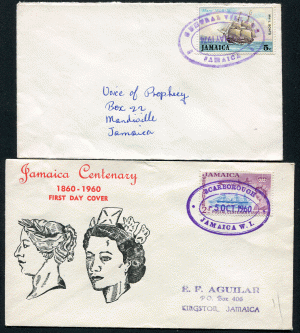 JAMAICA
5c
JAMAICA
Voice of Prophecy
Box 22
Mandiville
Jamaica
Jamaica Centenary
1860-1960
FIRST DAY COVER
JAMAICA
SCARBOROUGH
5 OCT 1960
JAMAICA W.I.
E. F. AGUILAR
P.O. Box 406
KINGSTON, JAMAICA